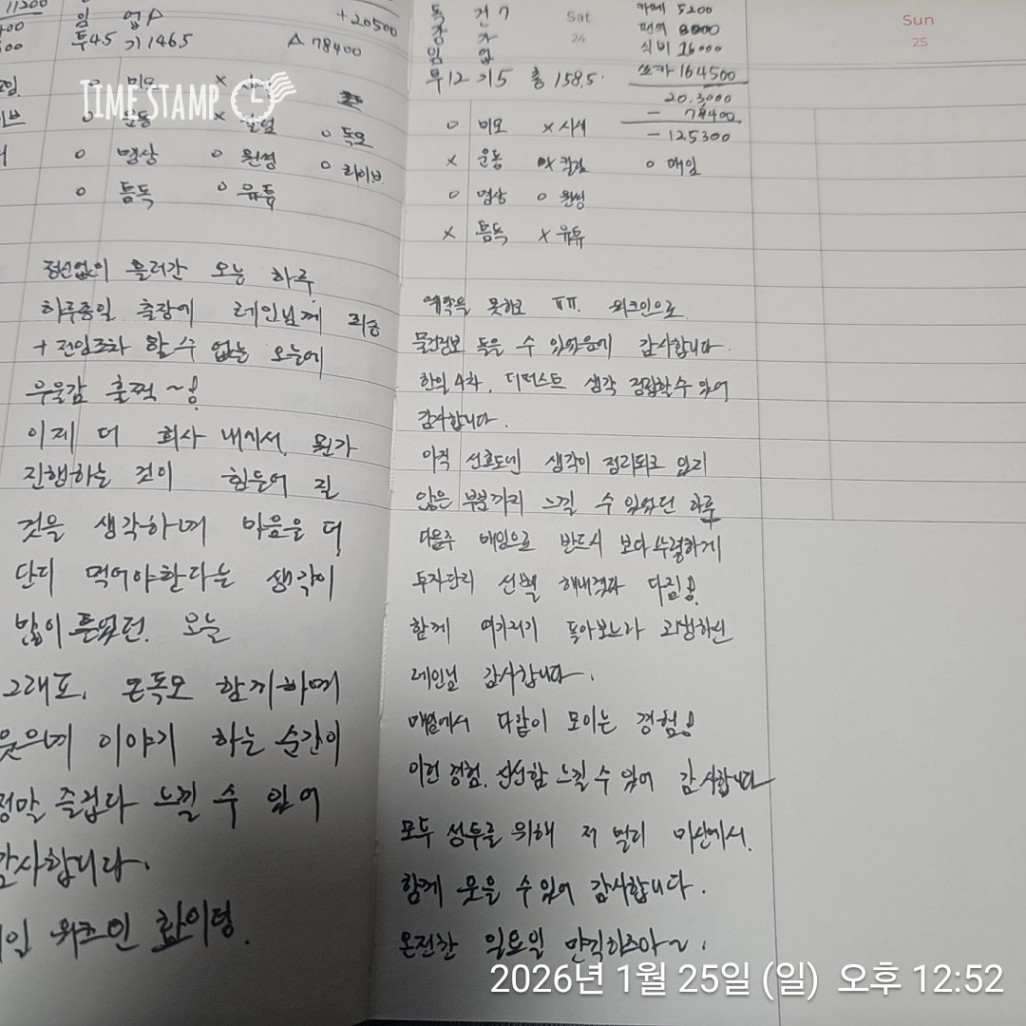 11200
임 업
+20500
투45 기1465
△78400
TIMESTAMP
o 미모 x
o 운동 x
o 독모
o 명상 o 원씽 o 라이브
o 틈독 o 유튜
정신없이 흘러간 오늘 하루.
하루종일 출장에 레인님께 죄송
+ 전임조차 할 수 없는 오늘에
우울감 훌쩍 ~!
이제 더 회사 내에서 뭔가
진행하는 것이 힘들어 질
것을 생각하며 마음을 더
단디 먹어야한다는 생각이
많이 들었던. 오늘
그래도, 돈독모 함께하며
웃으며 이야기 하는 순간이
정말 즐겁다 느낄 수 있어
감사합니다.
워크인 화이팅.
독 건7
강 가
임 업
투12 기5 총 158.5
Sat
24
카페 5200
편의 8000
식비 26000
쏘카 164500
20,3000
- 78400
- 125300
Sun
25
o 미모 x 시세
x 운동 x 칼럼 o 매임
o 명상 o 원씽
x 틈독 x 유튜
예약을 못하고 ㅠㅠ. 워크인으로
물건정보 들을 수 있었음에 감사합니다.
한일 4화. 디퍼스트 생각 정립할 수 있어
감사합니다.
아직 선호도엔 생각이 정리되고 있지
않은 부분까지 느낄 수 있었던 하루
다음주 매임으로 반드시 보다 수렴하게
투자단지 선별 해내겠다 다짐!
함께 여기저기 돌아보느라 고생하신
레인님 감사합니다.
매일에서 다같이 모이는 경험!
이런 경험. 신선함 느낄 수 있어 감사합니다
모두 성투를 위해 저 멀리 마산에서.
함께 웃을 수 있어 감사합니다.
온전한 일요일 만끽하즈아~.
2026년 1월 25일 (일) 오후 12:52